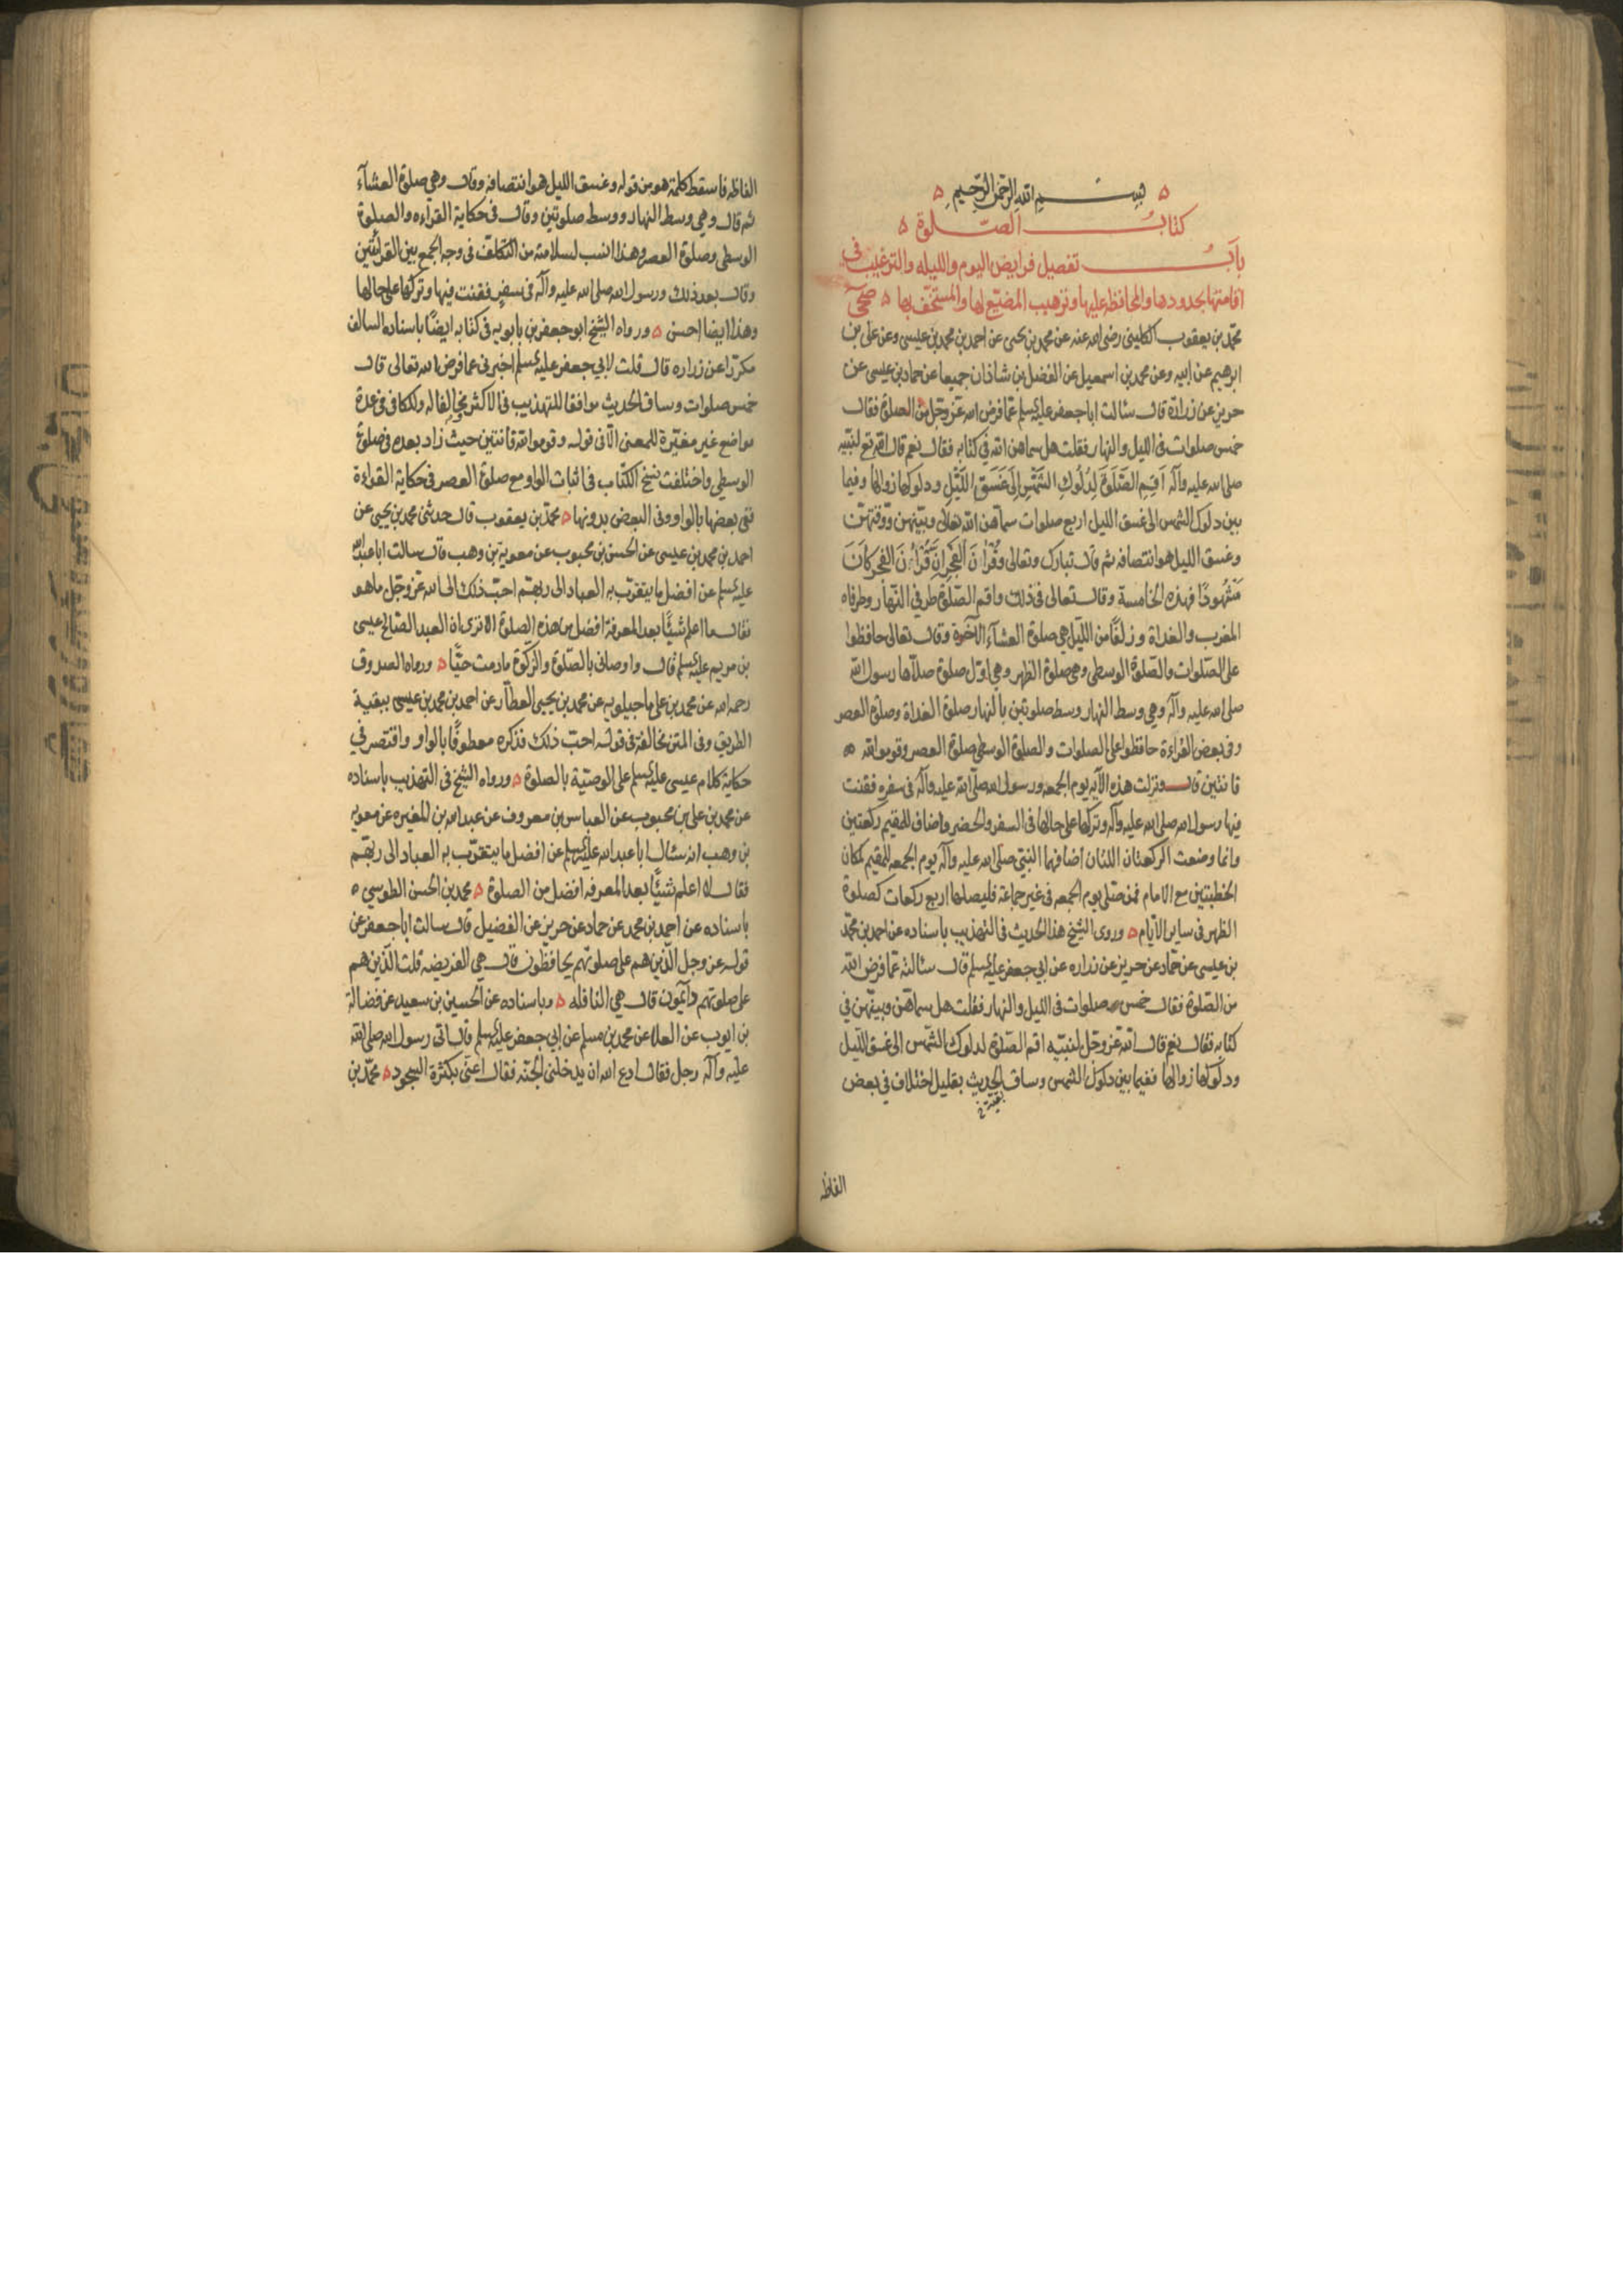 بسم الله الرحمن الرحيم
كتاب الصلوة
باب تفصيل فرايض اليوم والليله والترغيب في
اقامتها بحدودها والمحافظه عليها وترهيب المضيّع لها والمستخفّ بها صحي
محمّد بن يعقوب الكليني رضي الله عنه عن محمد بن يحيى عن احمد بن محمد بن عيسى وعن علي بن
ابرهيم عن ابيه وعن محمد بن اسمعيل عن الفضل بن شاذان جميعا عن حماد بن عيسى عن
حريز عن زرارة قال سئالت ابا جعفر عليه السلم عمّا فرض الله عزّ وجل من الصلوة فقال
خمس صلوات في الليل والنهار فقلت هل سماهن الله في كتابه فقال نعم قال الله تع لنبيّه
صلى الله عليه وآله اَقِمِ الصَّلَوةَ لِدُلُوكِ الشَّمْسِ اِلَى غَسَقِ اللَّيْلِ ودلوكها زوالها وفيما
بين دلوك الشمس الى غسق الليل اربع صلوات سماهن الله تعالى وبيّنهن ووقتهنّ
وغسق الليل هو انتصافه ثم قال تبارك وتعالى وَقُرْآنَ الْفَجْرِ اِنَّ قُرْآنَ الفَجْرِ كَانَ
مَشْهُودًا فهذه الخامسة وقال تعالى في ذلك واقم الصّلوة طرفي النّهار وطرفاه
المغرب والغداة وزلفًا من اللّيل هي صلوة العشآء الآخرة وقال تعالى حافظوا
على الصّلوات والصّلوة الوسطى وهي صلوة الظهر وهي اوّل صلوة صلاّها رسول الله
صلى الله عليه وآله وهي وسط النهار وسط صلوتين بالنهار صلوة الغداة وصلوة العصر
وفي بعض القراءة حافظوا على الصلوات والصلوة الوسطى صلوة العصر وقوموا لله
قانتين قال ونزلت هذه الآيه يوم الجمعه ورسول الله صلّى الله عليه وآله في سفره فقنت
فيها رسول الله صلى الله عليه وآله وتركها على حالها في السفر والحضر واضاف للمقيم ركعتين
وانما وضعت الركعتان اللتان اضافهما النبيّ صلى الله عليه وآله يوم الجمعه للمقيم لمكان
الخطبتين مع الامام فمن صلى يوم الجمعه في غير جماعة فليصلها اربع ركعات كصلوة
الظهر في ساير الايّام وروى الشيخ هذا الحديث في التهذيب باسناده عن احمد بن محمّد
بن عيسى عن حمّاد عن حريز عن زراره عن ابي جعفر عليه السلم قال سئالته عمّا فرض الله
من الصّلوة فقال خمس صلوات في الليل والنهار فقلت هل سماهنّ وبيّنهن في
كتابه فقال نعم قال الله عزّ وجل لنبيّه اقم الصّلوة لدلوك الشّمس الى غسق اللّيل
ودلوكها زوالها ففيما بين دلوك الشمس وساق الحديث بقليل اختلاف في بعض
الفاظه
الفاظه فاسقط كلمة هو من قوله وغسق الليل هو انتصافه وقال وهي صلوة العشآء
ثم قال وهي وسط النهار ووسط صلوتين وقال في حكاية القراءه والصلوة
الوسطى وصلوة العصر وهذا انسب لسلامته من التكلّف في وجه الجمع بين القرائتين
وقال بعد ذلك ورسول الله صلى الله عليه وآله في سفر فقنت فيها وتركها على حالها
وهذا ايضا احسن ورواه الشيخ ابو جعفر بن بابويه في كتابه ايضًا باسناده السالف
مكرّرا عن زراره قال قلت لابي جعفر عليه السلم اخبرني عما فرض الله تعالى قال
خمس صلوات وساق الحديث موافقا للتهذيب في الاكثر مخالفا له وللكافي في عدة
مواضع غير مغيّرة للمعنى الّا في قوله وقوموا لله قانتين حيث زاد بعده في صلوة
الوسطى واختلفت نسخ الكتاب في اثبات الواو مع صلوة العصر في حكاية القراءة
ففي بعضها بالواو وفي البعض بدونها محمد بن يعقوب قال حدثني محمد بن يحيى عن
احمد بن محمد بن عيسى عن الحسن بن محبوب عن معوية بن وهب قال سالت ابا عبد الله
عليه السلم عن افضل ما يتقرّب به العباد الى ربهم احبّ ذلك الى الله عزّ وجّل ما هو
فقال ما اعلم شيئًا بعد المعرفة افضل من هذه الصلوة الا ترى ان العبد الصّالح عيسى
بن مريم عليه السلم قال واوصاني بالصّلوة والزكوة ما دمت حيًّا ورواه الصدوق
رحمه الله عن محمد بن علي ماجيلويه عن محمد بن يحيى العطّار عن احمد بن محمد بن عيسى ببقية
الطريق وفي المتن مخالفة في قوله احبّ ذلك فذكره معطوفًا بالواو واقتصر في
حكاية كلام عيسى عليه السلم على الوصيّة بالصلوة ورواه الشيخ في التهذيب باسناده
عن محمد بن علي بن محبوب عن العباس بن معروف عن عبد الله بن المغيره عن معويه
بن وهب انه سئال ابا عبد الله عليه السلم عن افضل ما يتقرّب به العباد الى ربهم
فقال لا اعلم شيئًا بعد المعرفه افضل من الصلوة محمد بن الحسن الطوسي
باسناده عن احمد بن محمد عن حماد عن حريز عن الفضيل قال سالت ابا جعفر عن
قوله عز وجل الّذين هم على صلوتهم يحافظون قال هي الفريضه قلت الّذين هم
على صلوتهم دآئمون قال هي النافله وباسناده عن الحسين بن سعيد عن فضالة
بن ايوب عن العلا عن محمد بن مسلم عن ابي جعفر عليه السلم قال اتى رسول الله صلى الله
عليه وآله رجل فقال ادع الله ان يدخلني الجنّه فقال اعنّي بكثرة السجود محمّد بن